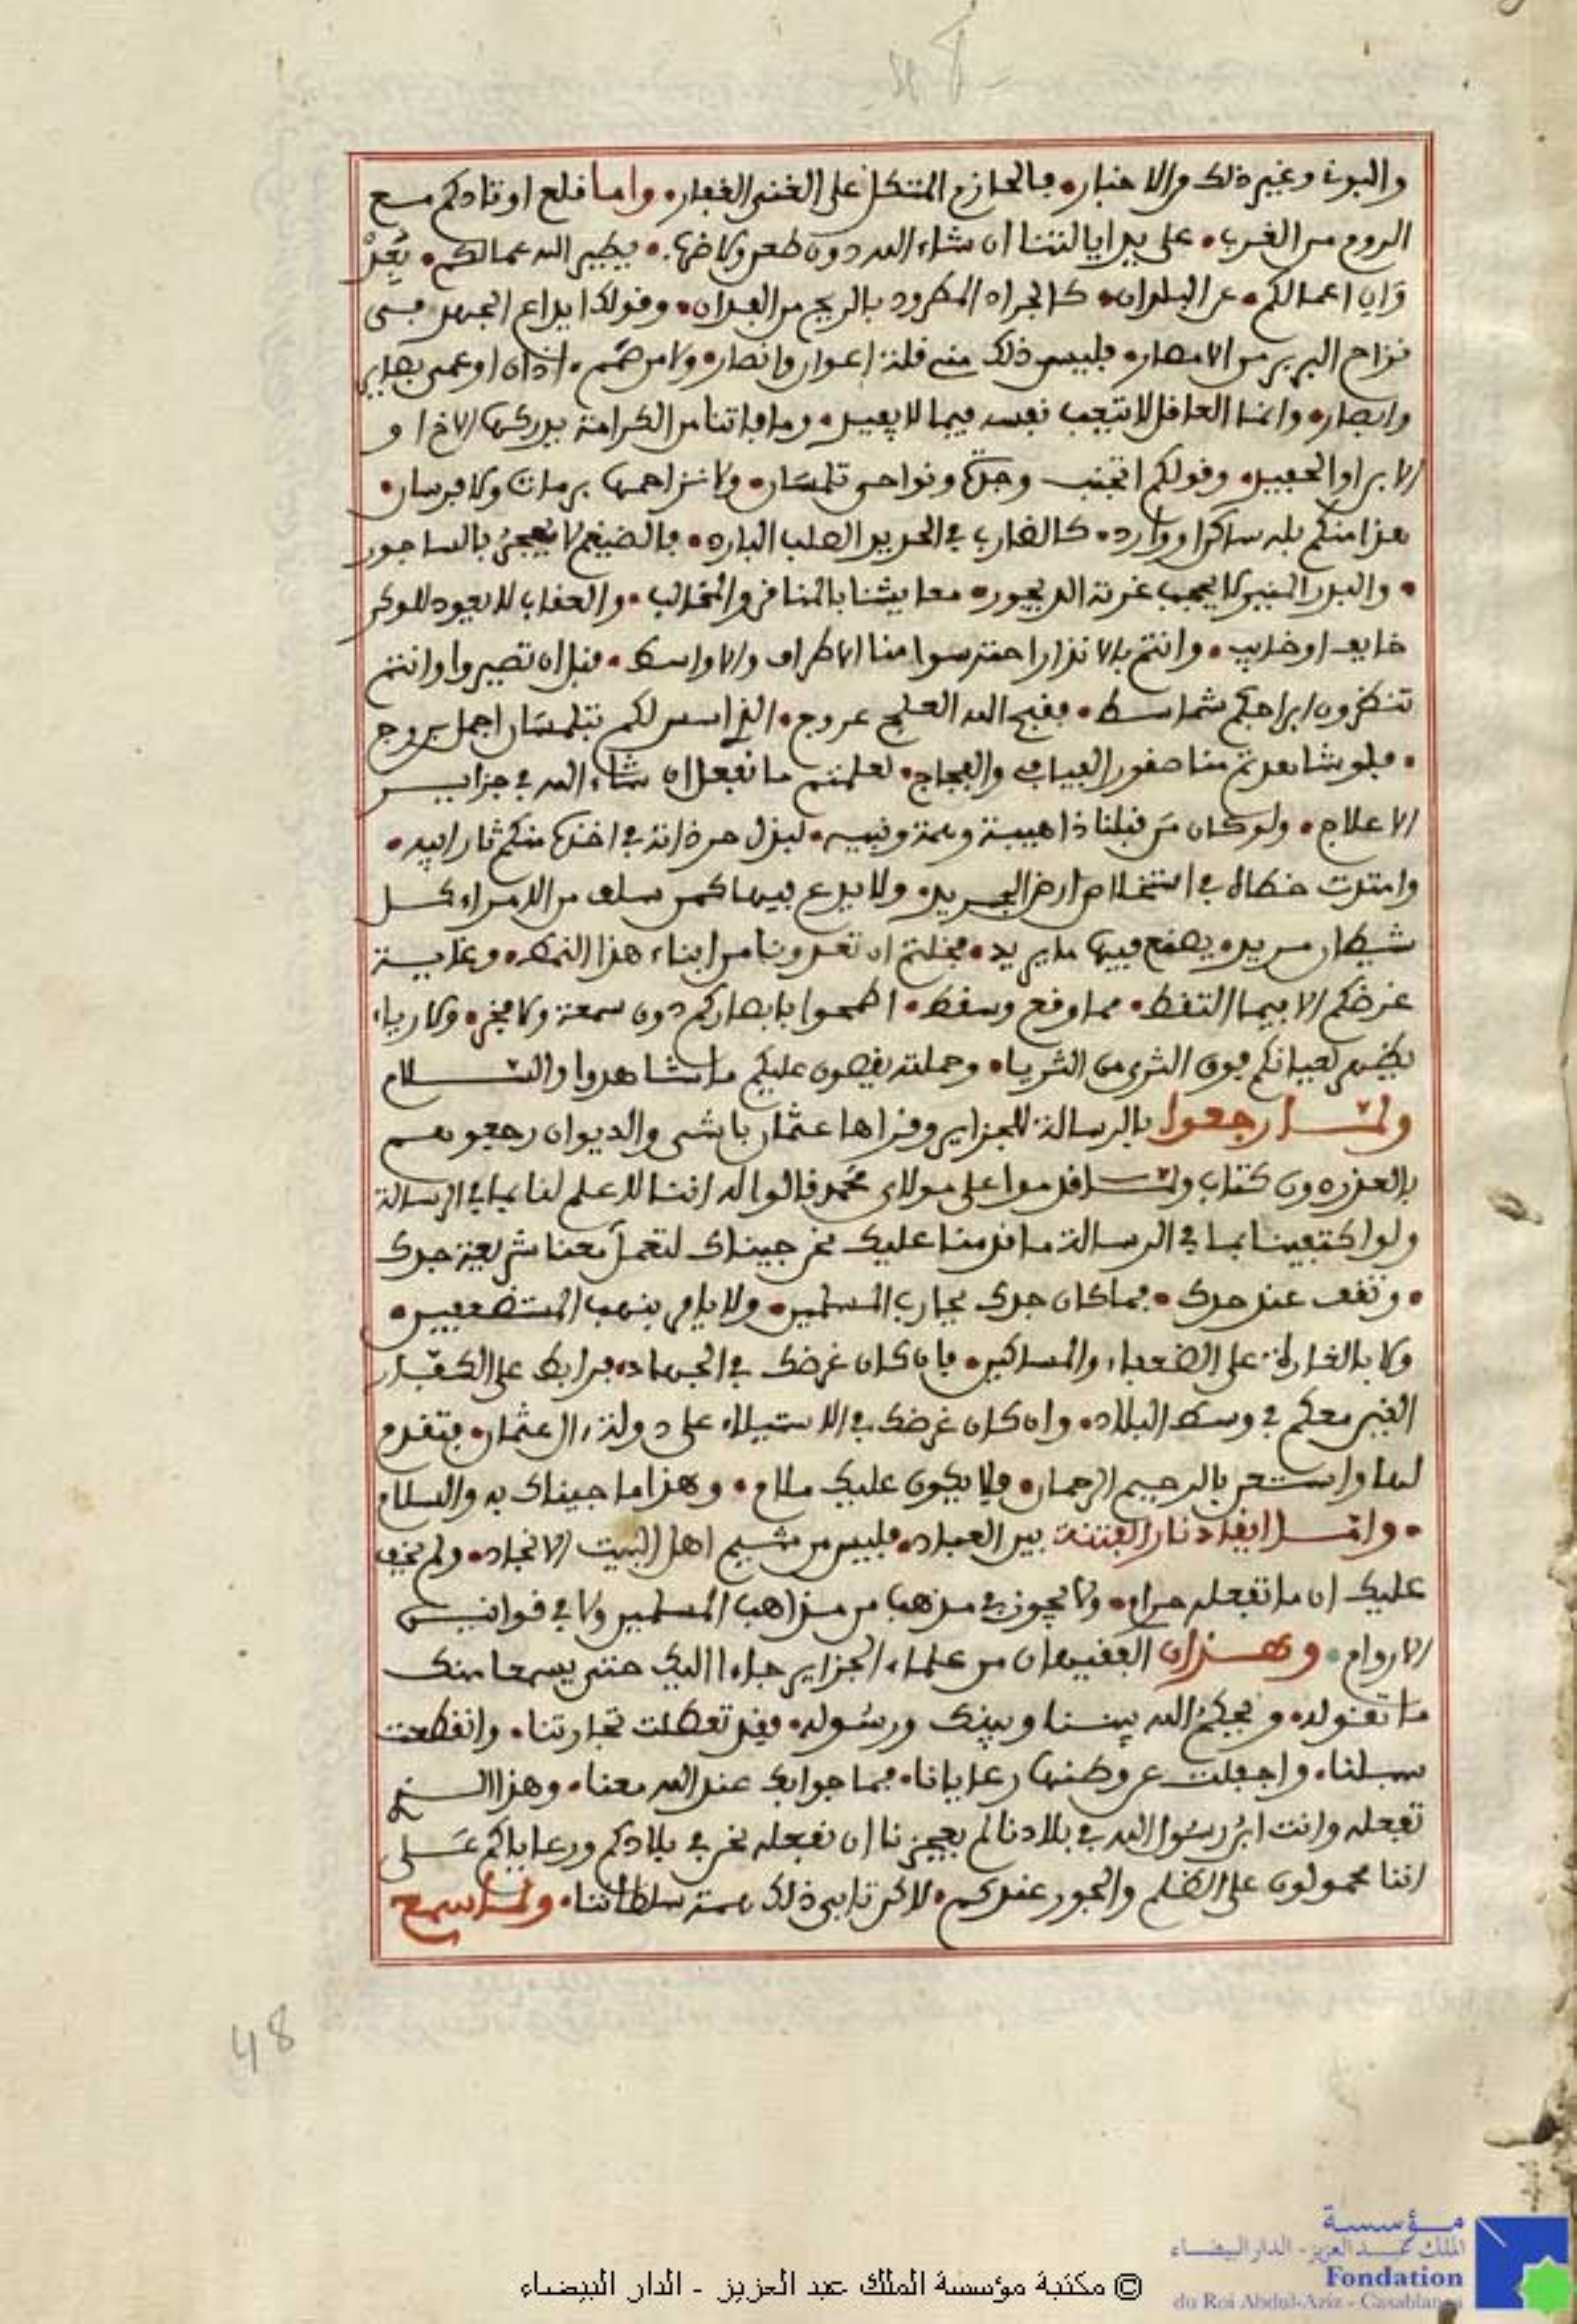 والبون وغير ذلك من الاخبار• فالحازم المتكل على الغني الغفار• واما قلع اوتادكم مع
الروم من الغرب• على يد ايالتنا ان شاء الله دون طعن ولا ضرب• يطير الله عمالكم• بعد
وان اعمالكم• عن البلدان• كالجراد المطرود بالريح من الفدان• وقولك ايداع الجهد في
نزاح البربر من الامصار• فليس ذلك من قلة اعوان وانصار• ولا من صمم اذان او عمى بصاير
وابصار• وانما العاقل لا يتعب نفسه فيما لا يفيد• وما فاتنا من الكرامة يدركها الاخ او
الابن او الحفيد• وقولكم اتجنب وجدة ونواحي تلمسان• ولا نزاحمها برماة ولا فرسان•
هذا منكم بله ساكن او وارد• كالضارب في الحديد الصلب البارد• فالضيغم لا يعجز بالساجور
• والبدر المنير لا يحجب غرته الديجور• معايشنا بالمناقر والمخالب• والعقاب لا يعود للوكر
خايف او خايب• وانتم بالانذار احترسوا منا الاطراف والاواسط• قبل ان تصيروا وانتم
تنظرون ابراجكم شماسط• فقبح الله العلج عروج• الذي اسس لكم بتلمسان اجمل بروج
• فلو شاهدتم منا صقور الفيافي والفجاج• لعلمتم ما نفعل ان شاء الله في جزاير
الاعلاج• ولو كان من قبلنا ذا هيبة وهمة ونيه• لبذل حزة انة في اخذها منكم ثارابيه•
وامتدت خطاه في استخلاص ارض الجريد• ولا يدع فيها كمن سلف من الامراء كل
شيطان مريد• يصنع فيها ما يريد• فخلتم ان تعدونا من ابناء هذا النمط• وغاية
غرضكم الا فيما التقط• مما وقع وسقط• اطمحوا بابصاركم دون سمعة ولا فخر• ولا رياء
يظهر لعيانكم فون الثرى من الثريا• وحملته يقصون عليكم ما شاهدوا والسلام
ولما رجعوا بالرسالة للجزاير وقراها عثمان باشى والديوان رجعوهم
بالعزدون كتاب ولما قدموا على مولاي محمد قالوا له اننا لا علم لنا بما في الرسالة
ولو اكتفينا بما في الرسالة ما قدمنا عليك نحن جيناك لتعمل معنا شريعة جدك
• وتقف عند حدك• فما كان جدك يحارب المسلمين• ولا يامر بنهب المستضعفين•
ولا بالغارة على الضعفاء والمساكين• فان كان غرضك في الجهاد• فرابط على الكفار
الذين معكم في وسط البلاد• وان كان غرضك في الاستيلاء على دولة ال عثمان• فتقدم
لها واستعن بالرحيم الرحمان• فلا يكون عليك ملام• وهذا ما جيناك به والسلام
• واما ايقاد نار الفتنة بين العباد• فليس من شيم اهل البيت الانجاد• ولم يخف
عليك ان ما تفعله حرام• ولا يجوز في مذهب من مذاهب المسلمين ولا في قوانين
الاروام• وهذان الفقيهان من علماء الجزاير جاءا اليك حتى يسمعا منك
ما تقوله• ويحكم الله بيننا وبينك ورسوله• فقد تعطلت تجارتنا• وانقطعت
سبلنا• واجفلت عن وطنها رعايانا• فما جوابك عند الله معنا• وهذا الذي
تفعله وانت ابن رسول الله في بلادنا لم يعجزنا ان نفعله نحن في بلادكم ورعاياكم على
اننا محمولون على الظلم والجور عندكم• لاكن تابى ذلك همة سلطاننا• ولما سمع
48
مؤسسة
الملك عبد العزيز - الدار البيضاء
Fondation
du Roi Abdul-Aziz - Casablanca
© مكتبة مؤسسة الملك عبد العزيز - الدار البيضاء